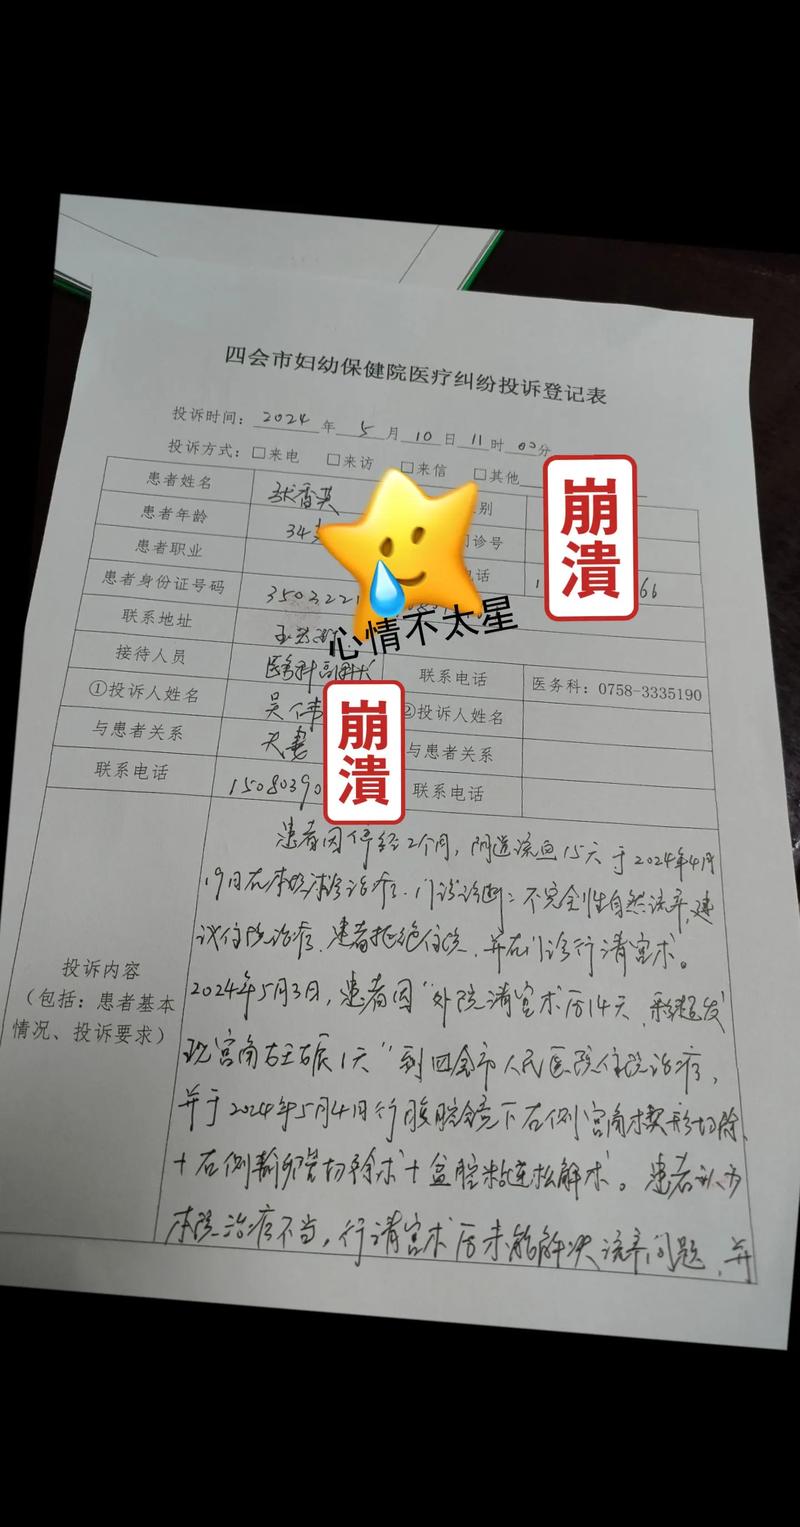 四会市妇幼保健院医疗纠纷投诉登记表
投诉时间：2024年5月10日11时00分
投诉方式：□来电 □来访 □来信 □其他
患者姓名 张香英 别
患者年龄 34 诊号
患者职业 电话 1 66
患者身份证号码 3503221
联系地址
接待人员 医务科副科长 联系电话 医务科：0758-3335190
①投诉人姓名 吴伟 ②投诉人姓名
与患者关系 夫妻 与患者关系
联系电话 15080390 联系电话
崩潰
心情不太星
崩潰
投诉内容
（包括：患者基本
情况、投诉要求）
患者因停经2个月，阴道流血15天于2024年4月
19日在本院门诊治疗，门诊诊断：不完全性自然流产，建
议住院治疗，患者拒绝住院，并在门诊行清宫术。
2024年5月3日，患者因“外院清宫术后14天，彩超发
现宫角妊娠1天”到四会市人民医院住院治疗，
并于2024年5月4日行腹腔镜下右侧宫角楔形切除
+右侧输卵管切除术+盆腔粘连松解术。患者认为
本院治疗不当，行清宫术后未能解决流产问题，并